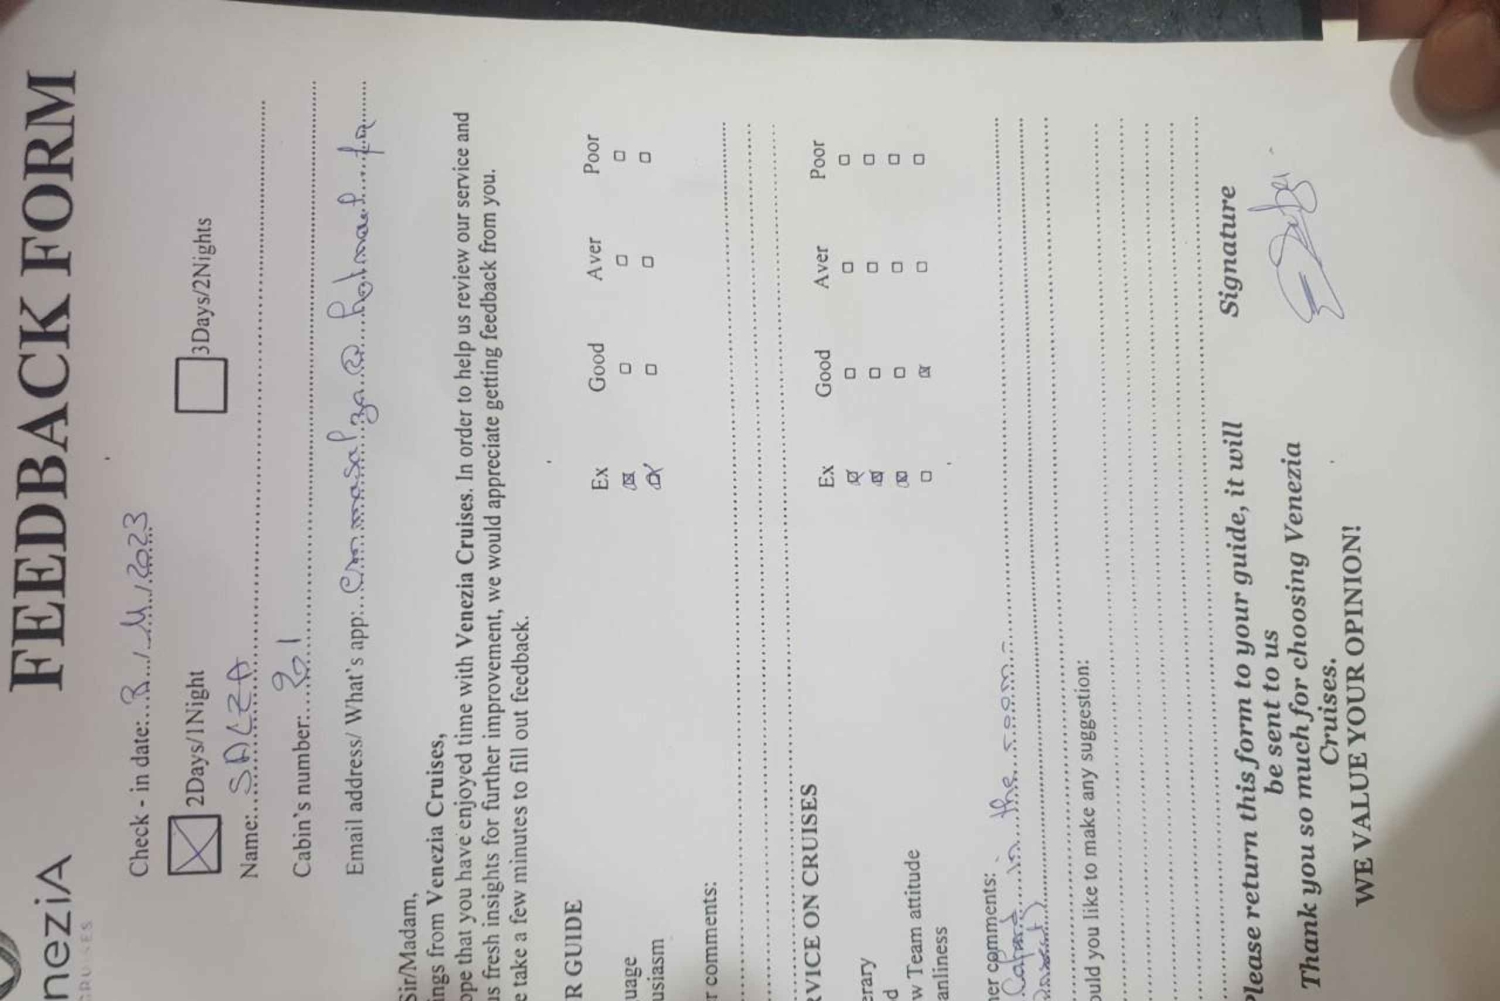 neziA
CRUISES
FEEDBACK FORM
Check - in date:
2023
2Days/1Night
3Days/2Nights
Name: SALZA
Cabin's number: 201
Email address/ What's app:
Sir/Madam,
ings from Venezia Cruises,
ope that you have enjoyed time with Venezia Cruises. In order to help us review our service and
us fresh insights for further improvement, we would appreciate getting feedback from you.
e take a few minutes to fill out feedback.
R GUIDE
Ex Good Aver Poor
uage
usiasm
r comments:
RVICE ON CRUISES
Ex Good Aver Poor
erary
d
w Team attitude
anliness
er comments:
in the room
ould you like to make any suggestion:
Please return this form to your guide, it will
be sent to us
Thank you so much for choosing Venezia
Cruises.
WE VALUE YOUR OPINION!
Signature